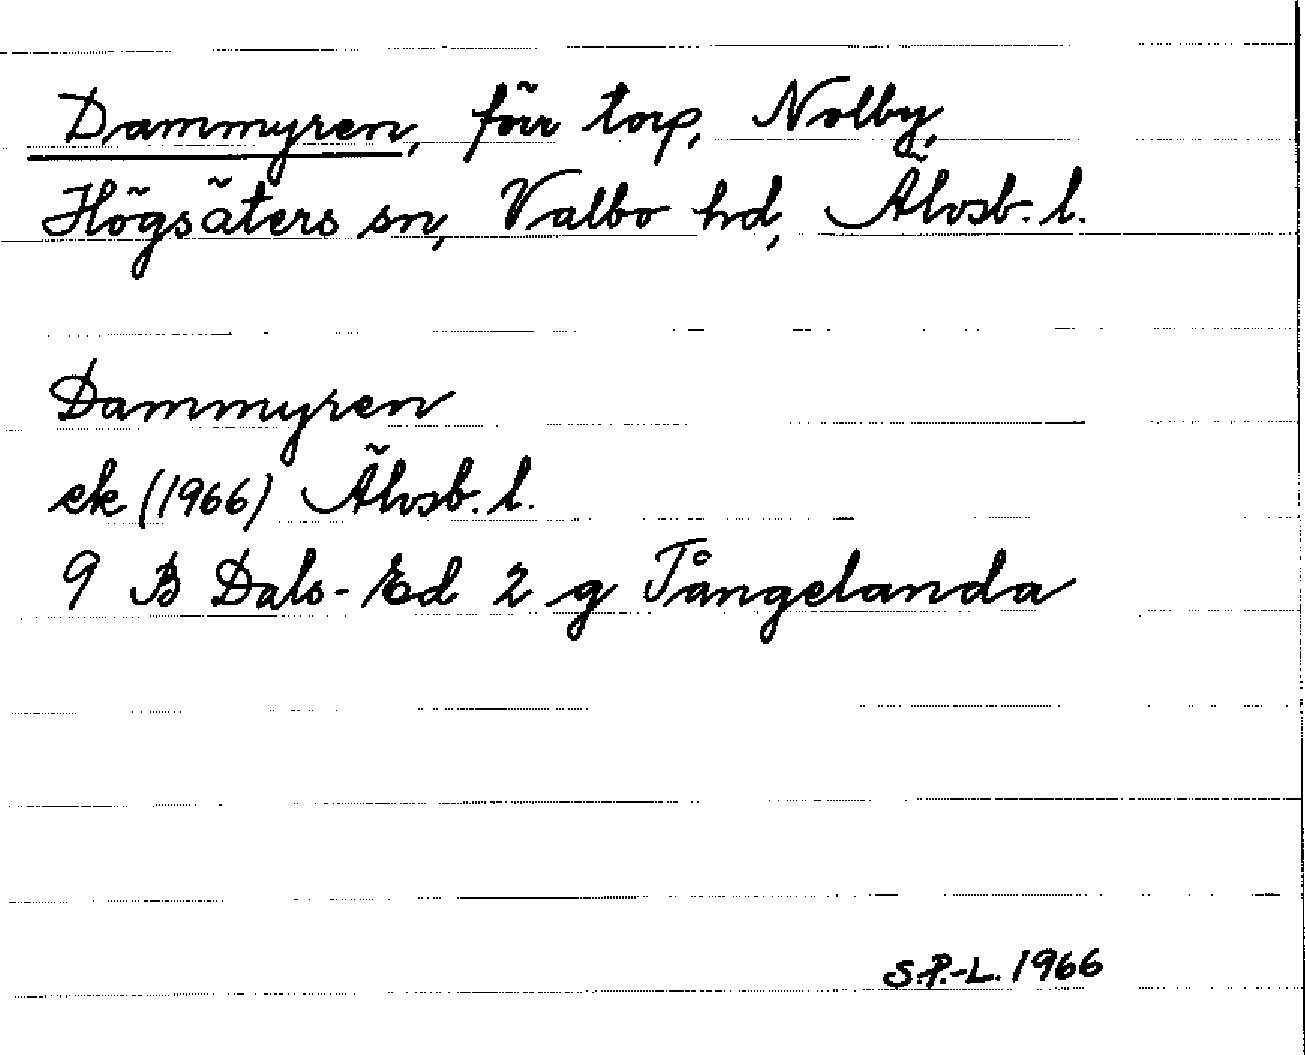 Dammyren, förr torp, Nolby,
Högsäters sn, Valbo hd, Älvsb. l.
Dammyren
ek (1966) Älvsb. l.
9 B Dals-Ed 2 g Tångelanda
S.P.-L. 1966